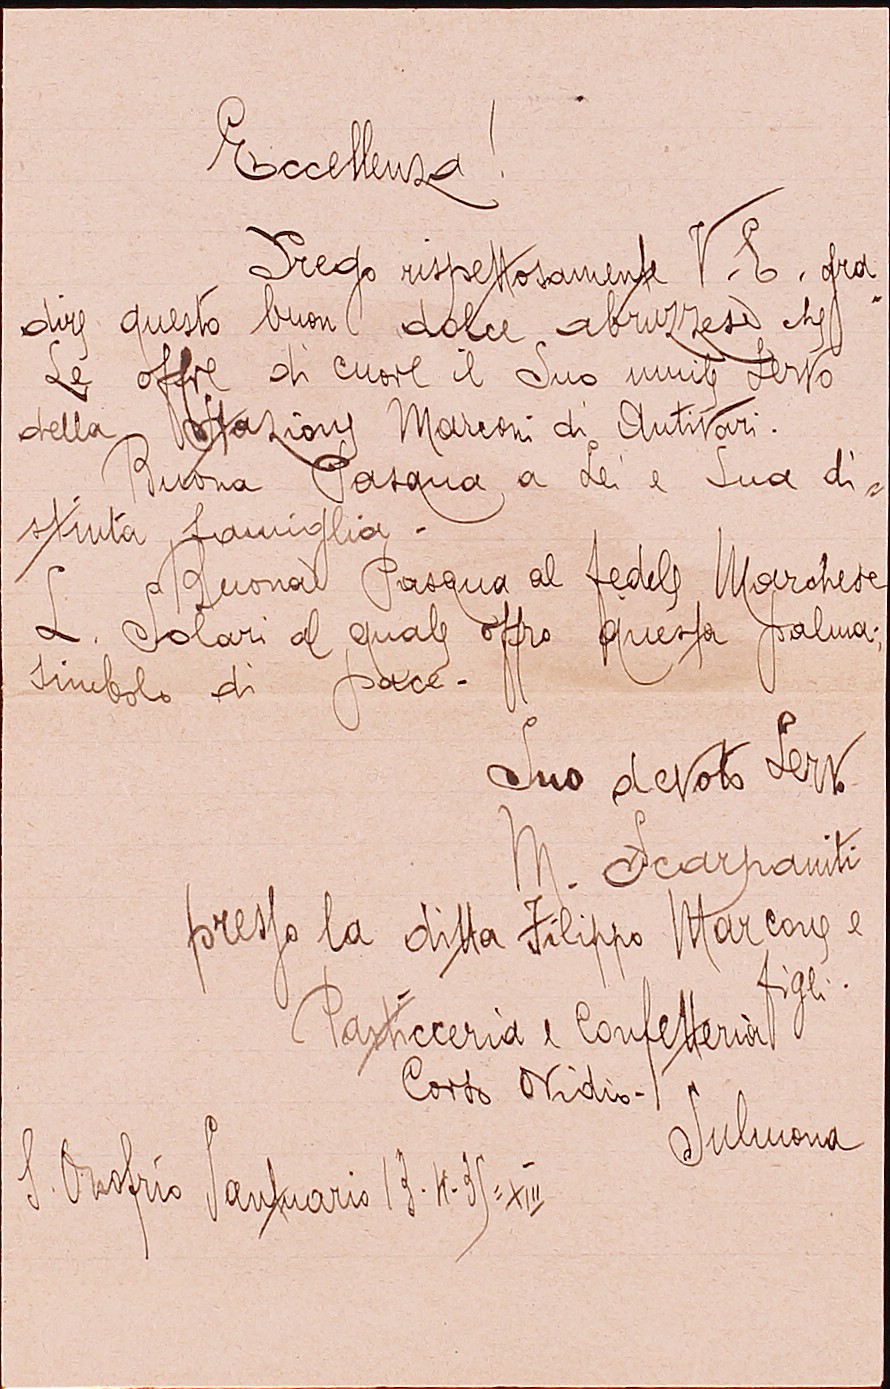 Eccellenza!
Prego rispettosamente V. E. gra
dire questo buon dolce abruzzese che
Le offre di cuore il Suo umile servo
della Stazione Marconi di Antivari.
Buona Pasqua a Lei e Sua di=
stinta famiglia.
Buona Pasqua al fedele Marchese
L. Solari al quale offro questa palma;
simbolo di pace.-
Suo devoto Servo
M. Scarpaniti
presso la ditta Filippo Marcone e
figli.
Pasticceria e Confetteria
Corso Ovidio-
Sulmona
S. Onofrio Santuario 13.4.35=XIII